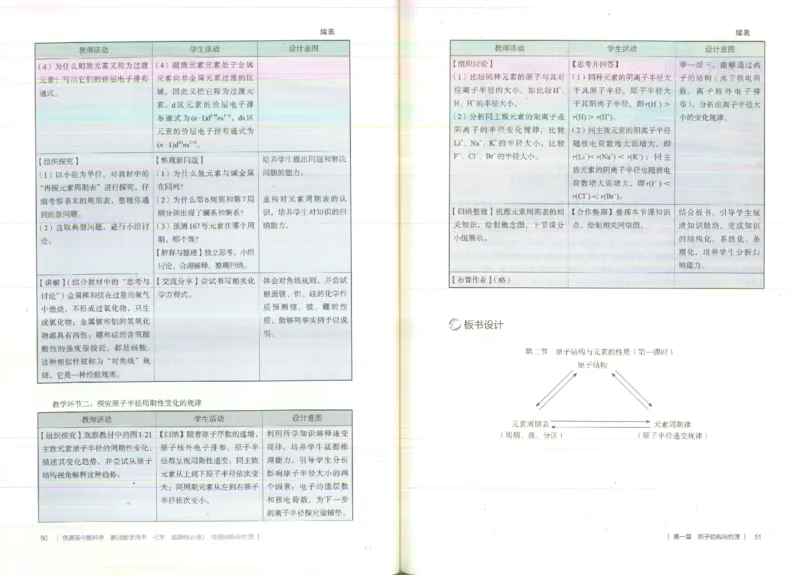 续表
教师活动 学生活动 设计意图
（4）为什么副族元素又称为过渡
元素；写出它们的价层电子排布
通式。
（4）副族元素元素处于金属
元素向非金属元素过渡的区
域，因此又把它称为过渡元
素。d区元素的价层电子排
布通式为(n-1)d¹⁻⁸ns¹⁻²，ds区
元素的价层电子排布通式为
(n-1)d¹⁰ns¹⁻²。
【组织探究】
（1）以小组为单位，对教材中的
“再探元素周期表”进行探究，仔
细考察书末的周期表，整理你遇
到的新问题。
（2）选取典型问题，进行小组讨
论。
【整理新问题】
（1）为什么氢元素与碱金属
在同列？
（2）为什么第6周期和第7周
期分别出现了镧系和锕系？
（3）预测167号元素在哪个周
期，哪个族？
【解释与整理】独立思考，小组
讨论，合理解释，整理归纳。
培养学生提出问题和解决
问题的能力。
重构对元素周期表的认
识，培养学生对知识的归
纳能力。
【讲解】（结合教材中的“思考与
讨论”）金属锂和镁在过量的氧气
中燃烧，不形成过氧化物，只生
成氧化物；金属铍和铝的氢氧化
物都具有两性；硼和硅的含氧酸
酸性的强度很接近，都是弱酸。
这种相似性被称为“对角线”规
则，它是一种经验规则。
【交流分享】尝试书写相关化
学方程式。
体会对角线规则，并尝试
根据镁、铝、硅的化学性
质预测锂、铍、硼的性
质，能够列举实例予以说
明。
教学环节二：探究原子半径周期性变化的规律
教师活动 学生活动 设计意图
【组织探究】观察教材中的图1-21
主族元素原子半径的周期性变化，
描述其变化趋势，并尝试从原子
结构视角解释这种趋势。
【归纳】随着原子序数的递增，
原子核外电子排布、原子半
径都呈现周期性递变；同主族
元素从上到下原子半径依次变
大；同周期元素从左到右原子
半径依次变小。
利用所学知识阐释递变
规律，培养学生证据推
理能力。引导学生分析
影响原子半径大小的两
个因素：电子的能层数
和核电荷数，为下一步
的离子半径探究做铺垫。
50 | 普通高中教科书 教师教学用书 化学 选择性必修2 物质结构与性质 |
续表
教师活动 学生活动 设计意图
【组织讨论】
（1）比较同种元素的原子与其对
应离子半径的大小，如比较H⁻、
H、H⁺的半径大小。
（2）分析同主族元素的阳离子或
阴离子的半径变化规律，比较
Li⁺、Na⁺、K⁺的半径大小，比较
F⁻、Cl⁻、Br⁻的半径大小。
【思考并回答】
（1）同种元素的阴离子半径大
于其原子半径，原子半径大
于其阳离子半径，即r(H⁻)＞
r(H)＞r(H⁺)。
（2）同主族元素的阳离子半径
随核电荷数增大而增大，即
r(Li⁺)＜r(Na⁺)＜r(K⁺)；同主
族元素的阴离子半径也随核电
荷数增大而增大，即r(F⁻)＜
r(Cl⁻)＜r(Br⁻)。
举一反三，能够通过离
子的结构（离子核电荷
数、离子核外电子排
布），分析出离子半径大
小的变化规律。
【归纳整理】梳理元素周期表的相
关知识，绘制概念图，下节课分
小组展示。
【合作整理】整理本节课知识
点，绘制相关网络图。
结合板书，引导学生厘
清知识脉络，完成知识
的结构化、系统化、条
理化，培养学生分析归
纳能力。
【布置作业】（略）
板书设计
第二节 原子结构与元素的性质（第一课时）
原子结构
元素周期表 元素周期律
（周期、族、分区） （原子半径递变规律）
| 第一章 原子结构与性质 | 51